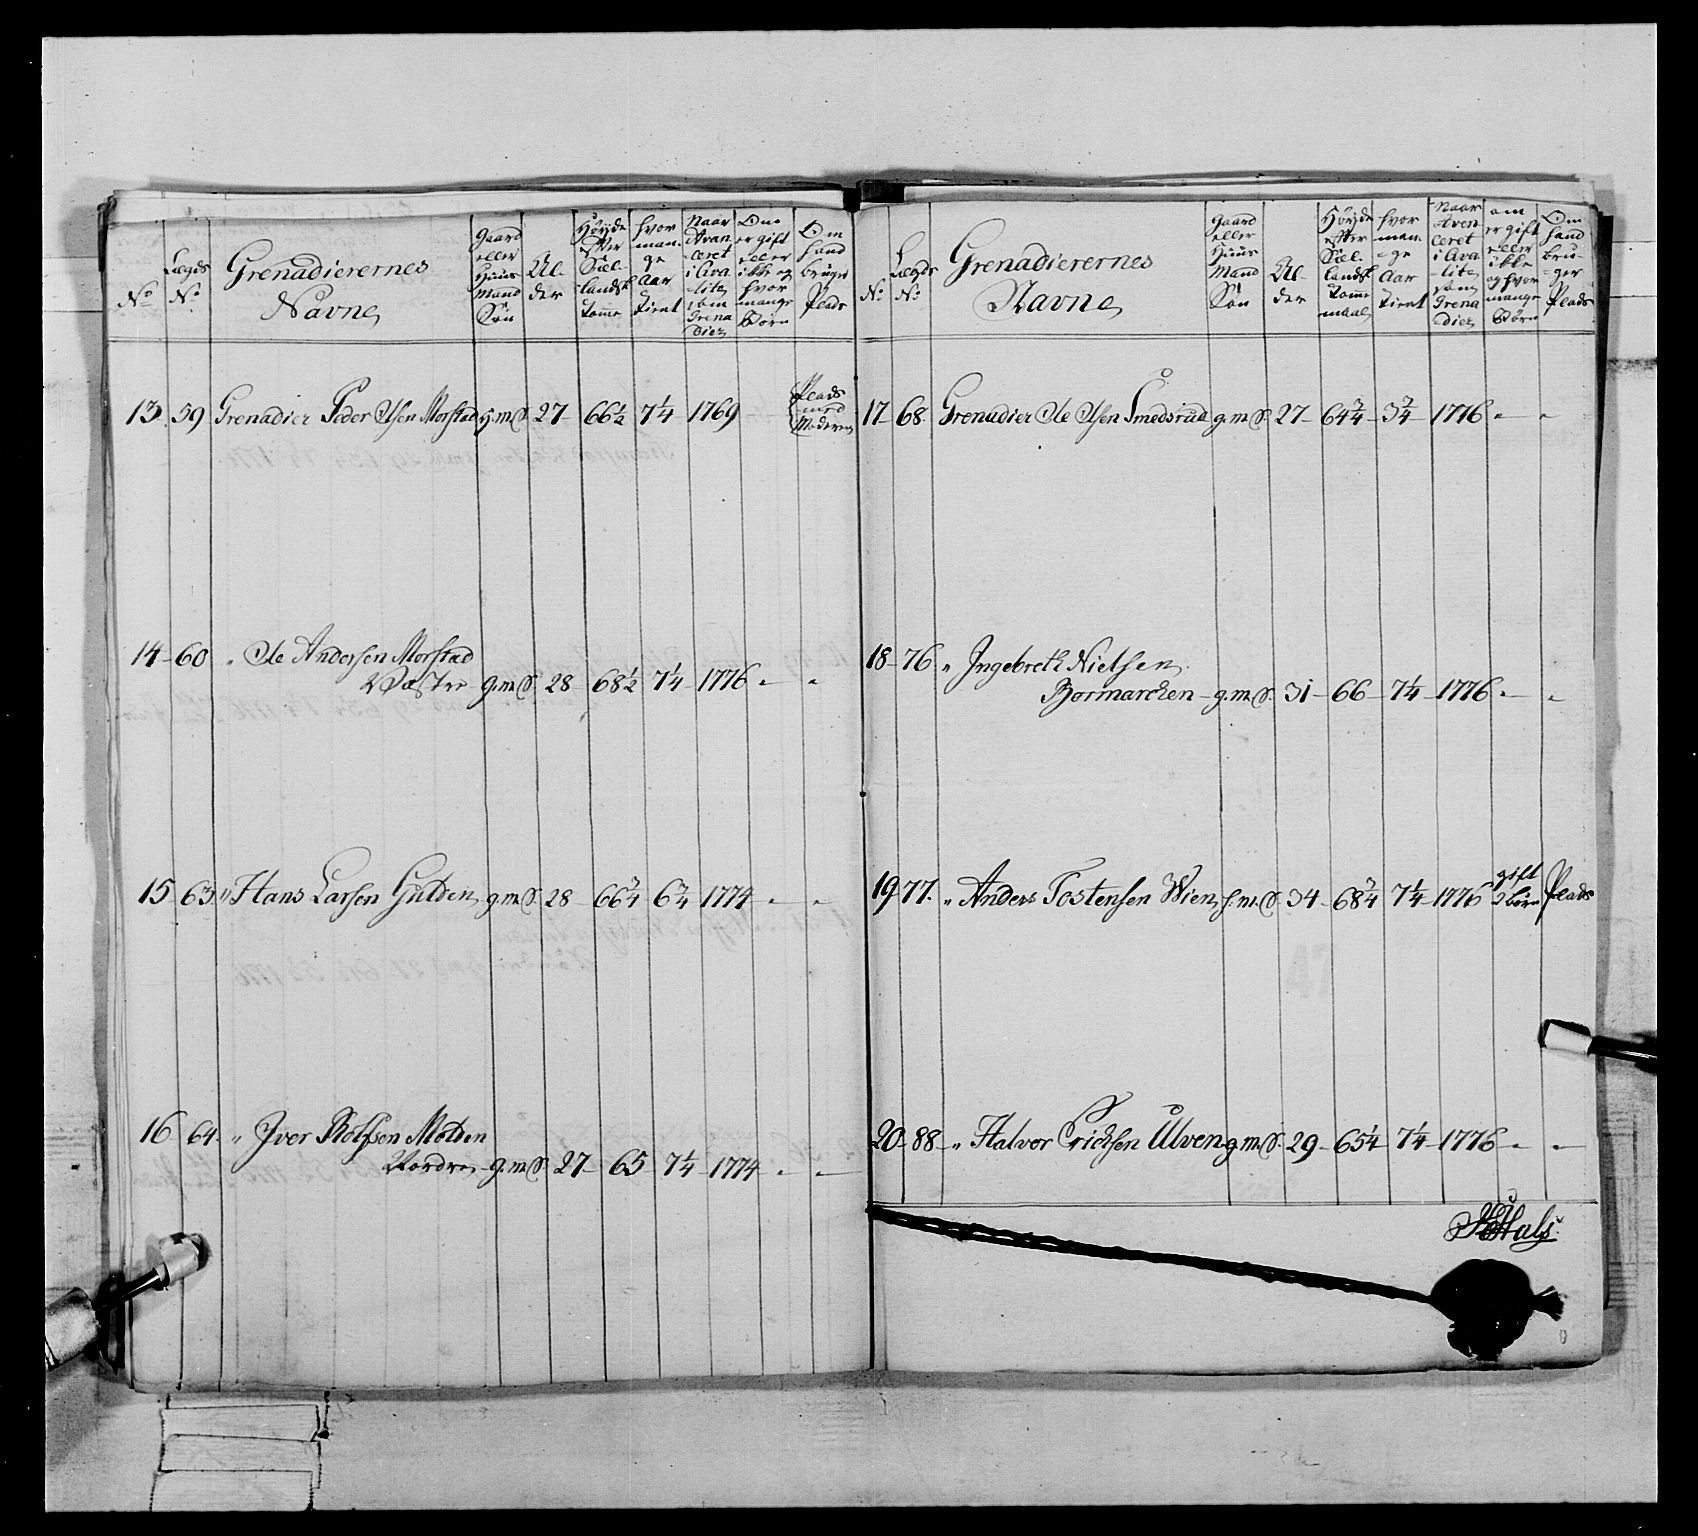 No
Lægds No
Grenadierernes Navne
Gaard eller Huus Mand Søn
Al- der
Høyde efter Sæl- landsk Tomme
hvor man- ge Aar Tient
Naar Avan ceret i qva- lite som Grena dier
Om er gift eller ikke og hvor mange Børn
Om hand bruger Plads
13 59 Grenadier Peder Olsen Morstad h.m.S. 27 66½ 7¼ 1769 - Plads med Moderen
14 60 " Ole Andersen Morstad
Væstre g.m.S. 28 68½ 7¼ 1776 - -
15 63 " Hans Larsen Gulden g.m.S. 28 66¾ 6¾ 1774 - -
16 64 " Iver Rolfsen Molden
Nordre g.m.S. 27 65 7¼ 1774 - -
No
Lægds No
Grenadierernes Navne
Gaard eller Huus Mand Søn
Al- der
Høyde efter Sæl- landsk Tomme maal
hvor man- ge Aar Tient
Naar Aven ceret i qva- lite som Grena dier
om er gift eller ikke og hvor mange Børn
Om hand bru- ger Plads
17 68 Grenadier Ole Olsen Smedsrud g.m.S. 27 64¾ 3¾ 1776 - -
18 76 " Ingebreth Nielsen
Bormarchen g.m.S. 31 66 7¼ 1776 - -
19 77 " Anders Tostensen Wien h.m.S. 34 68¾ 7¼ 1776 gift 2 børn Plads
20 88 " Halvor Erichsen Ulven g.m.S. 29 65¼ 7¼ 1776 - -